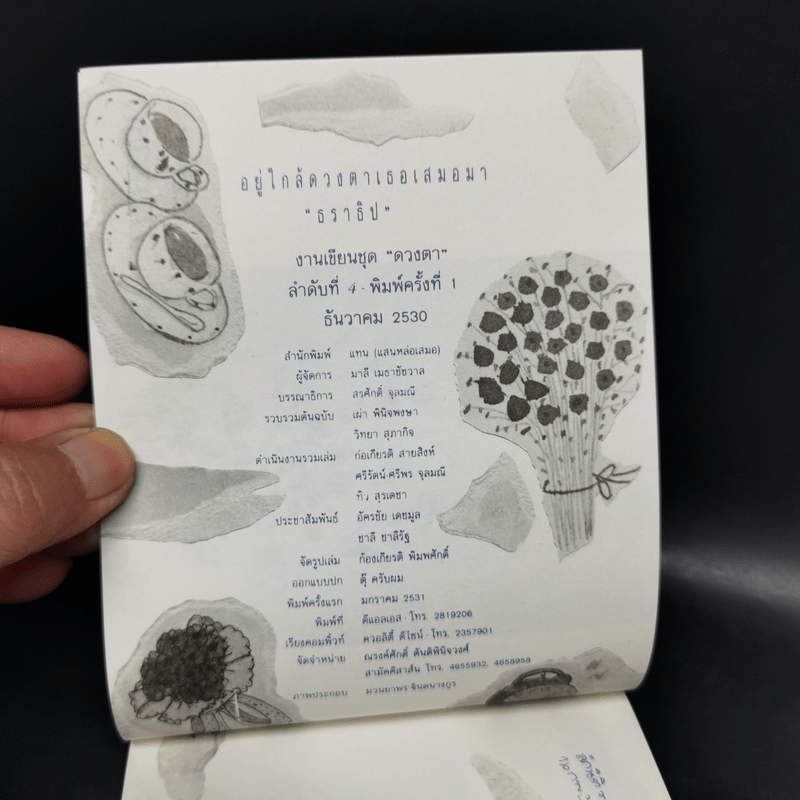 อยู่ใกล้ดวงตาเธอเสมอมา
"ธราธิป"
งานเขียนชุด "ดวงตา"
ลำดับที่ 4 - พิมพ์ครั้งที่ 1
ธันวาคม 2530
สำนักพิมพ์ แทน (แสนหล่อเสมอ)
ผู้จัดการ มาลี เมธาชัชวาล
บรรณาธิการ สรศักดิ์ จุลมณี
รวบรวมต้นฉบับ เผ่า พินิจพงษา
วิทยา สุภากิจ
ดำเนินงานรวมเล่ม ก่อเกียรติ สายสิงห์
ศรีรัตน์-ศรีพร จุลมณี
สุรเดชา
ประชาสัมพันธ์ อัครชัย เดชมูล
ชาลี ชาลีรัฐ
จัดรูปเล่ม ก้องเกียรติ พิมพศักดิ์
ออกแบบปก ตุ๊ ครับผม
พิมพ์ครั้งแรก มกราคม 2531
พิมพ์ที่ ดีแอลเอส - โทร. 2819206
เรียงคอมพิ้วท์ ควอลิตี้ ดีไซน์ - โทร. 2357901
จัดจำหน่าย ณรงค์ศักดิ์ ตันติพินิจวงศ์
สามัคคีสาส์น โทร. 4655932, 4658958
ภาพประกอบ มวนยาพร จินดนางกูร